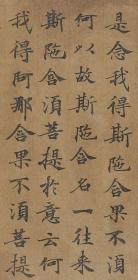 是念我得斯陁含果不湏
何以故斯陁含名一往来
斯陁含湏菩提於意云何
我得阿那含果不湏菩提